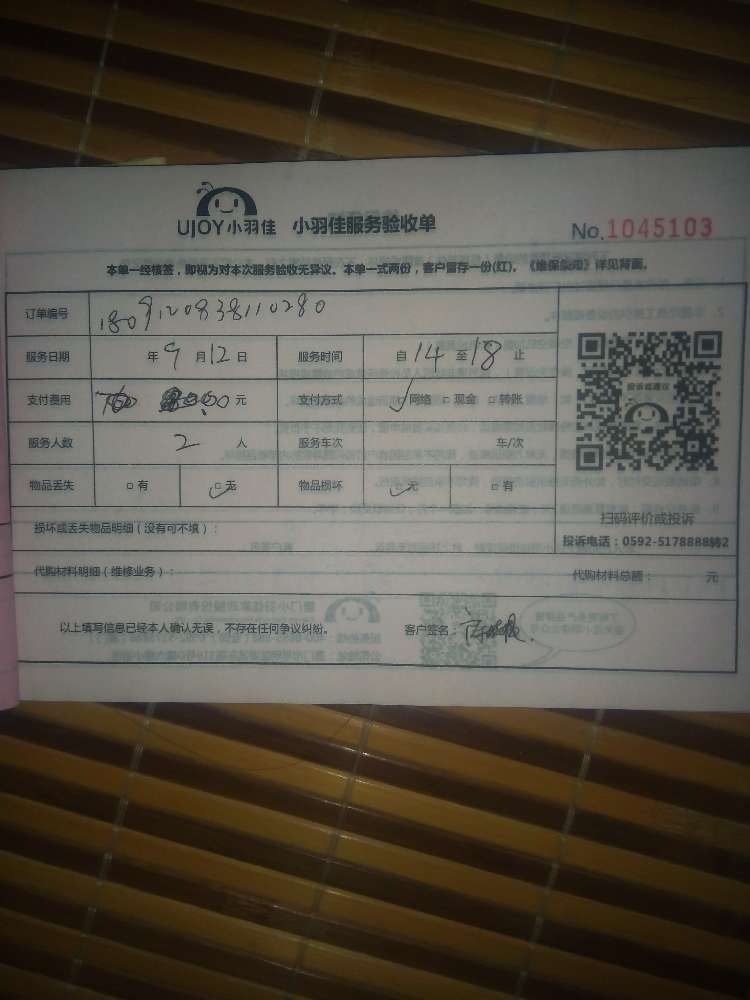 UJOY小羽佳 小羽佳服务验收单 No.1045103
本单一经核签，即视为对本次服务验收无异议。本单一式两份，客户留存一份(红)。《维保条例》详见背面。
订单编号 1809120838110280
服务日期 年 9 月 12 日 服务时间 自 14 至 18 止
支付费用 元 支付方式 网络 现金 转账
服务人数 2 人 服务车次 车/次
物品丢失 有 无 物品损坏 无 有
损坏或丢失物品明细（没有可不填）：
代购材料明细（维修业务）： 代购材料总额： 元
以上填写信息已经本人确认无误，不存在任何争议纠纷。 客户签名：
投诉或建议
扫码评价或投诉
投诉电话：0592-5178888转2